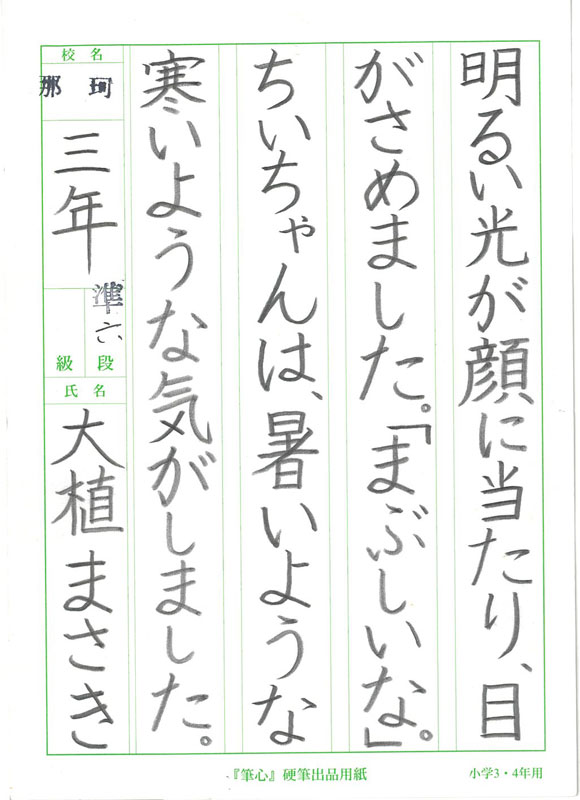 明るい光が顔に当たり、目
がさめました。「まぶしいな。」
ちいちゃんは、暑いような
寒いような気がしました。
校名
那珂
三年
準六
段
級
氏名
大植まさき
『筆心』硬筆出品用紙
小学3・4年用